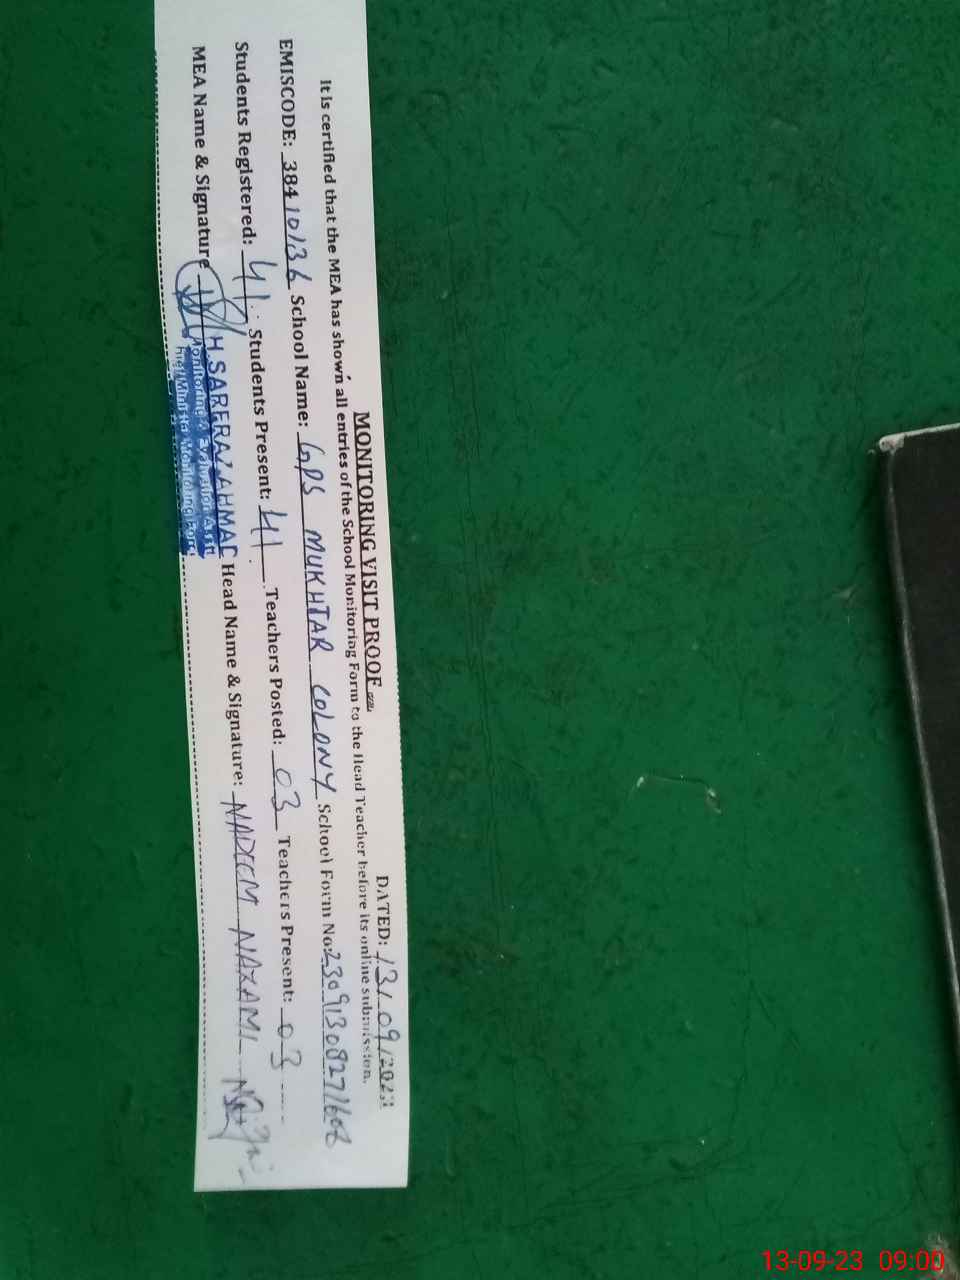 MONITORING VISIT PROOF
DATED: 13/09/2023
It is certified that the MEA has shown all entries of the School Monitoring Form to the Head Teacher before its online submission.
EMISCODE: 38410136 School Name: GPS MUKHTAR COLONY School Form No: 23091308271608
Students Registered: 41 Students Present: 41 Teachers Posted: 03 Teachers Present: 03
MEA Name & Signature H.SARFRAZ AHMAD Head Name & Signature: NADEEM NAZAMI
Monitoring & Evaluation Asstt
Monitoring Force
13-09-23 09:00